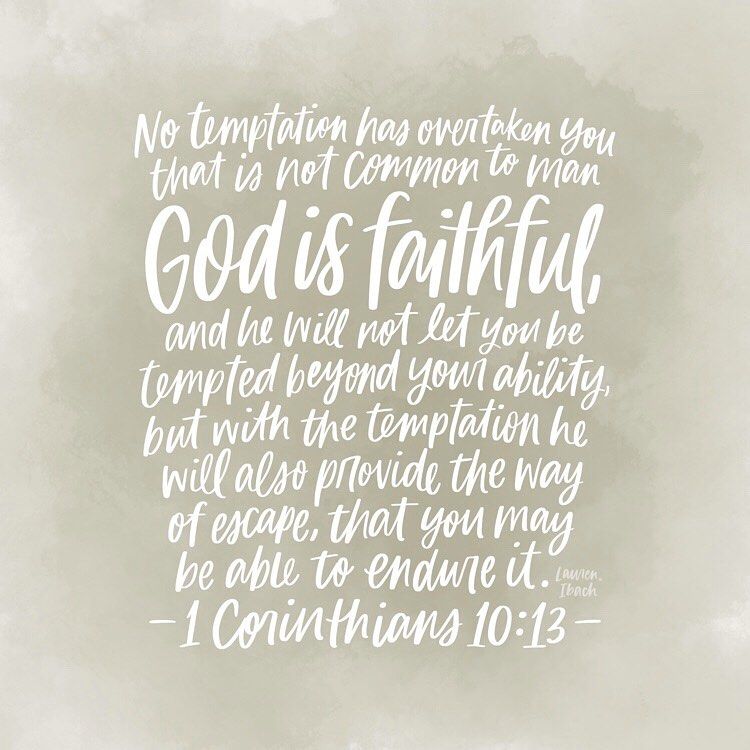 No temptation has overtaken you
that is not common to man
God is faithful,
and he will not let you be
tempted beyond your ability,
but with the temptation he
will also provide the way
of escape, that you may
be able to endure it.
Lauren.
Ibach
– 1 Corinthians 10:13 –